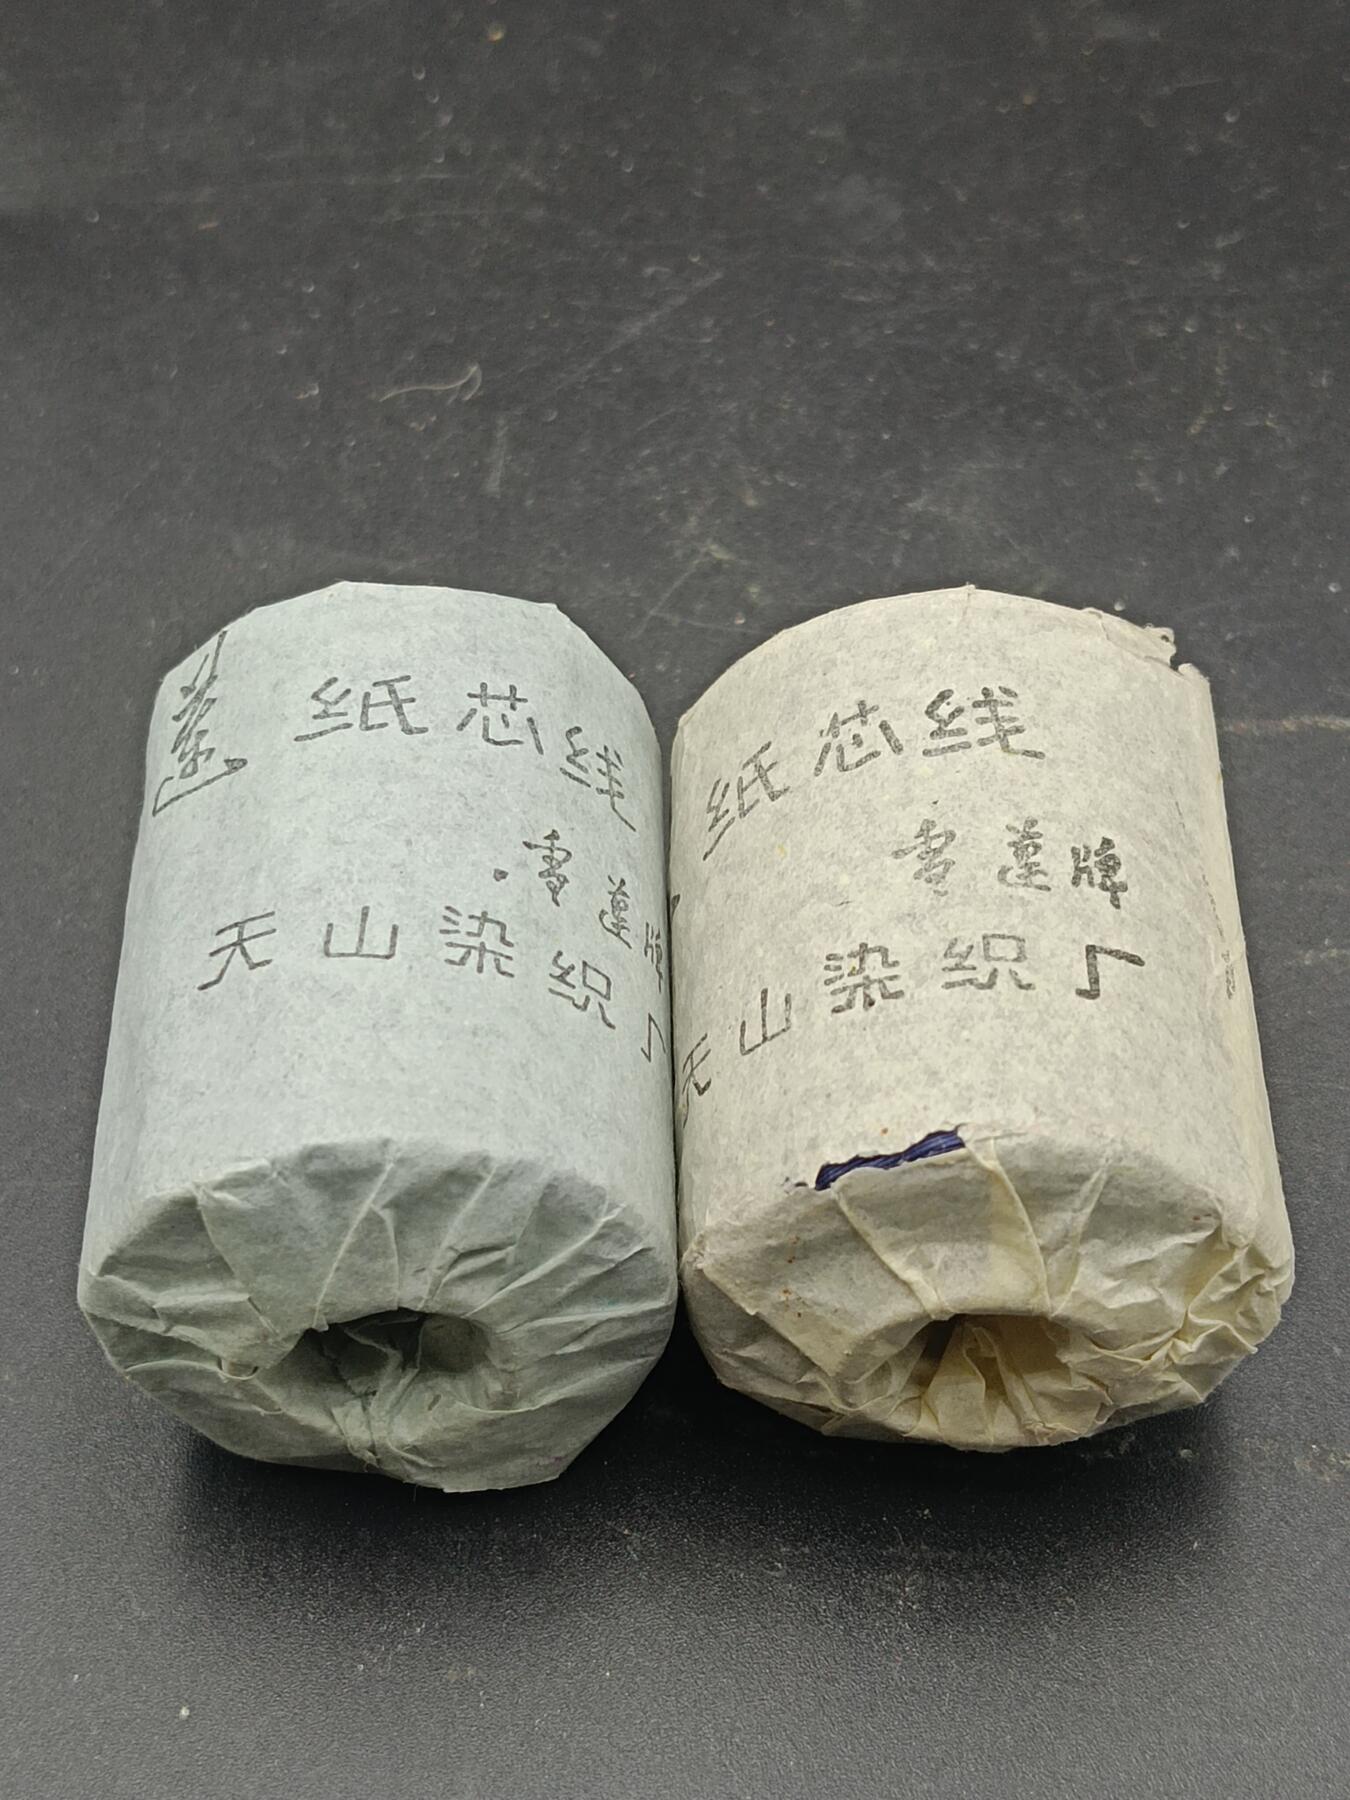 蓮
纸芯线
雪莲牌
天山染织厂
纸芯线
雪莲牌
天山染织厂